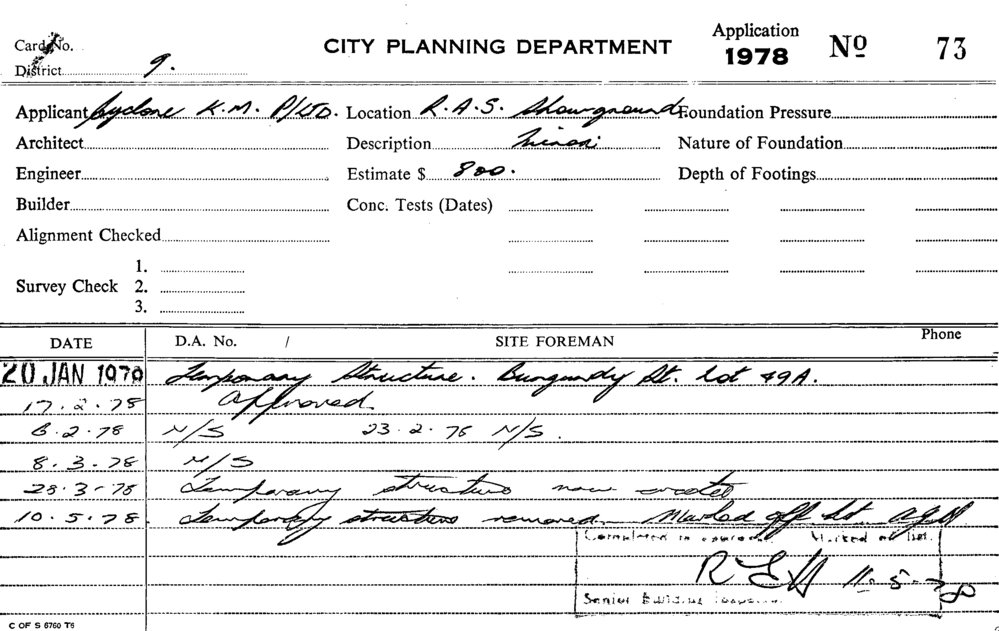 Card No.
CITY PLANNING DEPARTMENT
Application
1978
No 73
District 9.
Applicant Cyclone K.M. P/LTD. Location R.A.S. Showground Foundation Pressure
Architect Description Minor Nature of Foundation
Engineer Estimate $ 800. Depth of Footings
Builder Conc. Tests (Dates)
Alignment Checked
1.
Survey Check 2.
3.
DATE D.A. No. / SITE FOREMAN Phone
20 JAN 1978 Temporary Structure. Burgundy St. Lot 49A.
17.2.78 Approved.
6.2.78 N/S 23.2.78 N/S.
8.3.78 N/S
28.3.78 Temporary structure now erected
10.5.78. Temporary structure removed. Marked off list.
Completed as approved. Marked off list.
11.5.78
Senior Building Inspector
C OF S 6760 T6